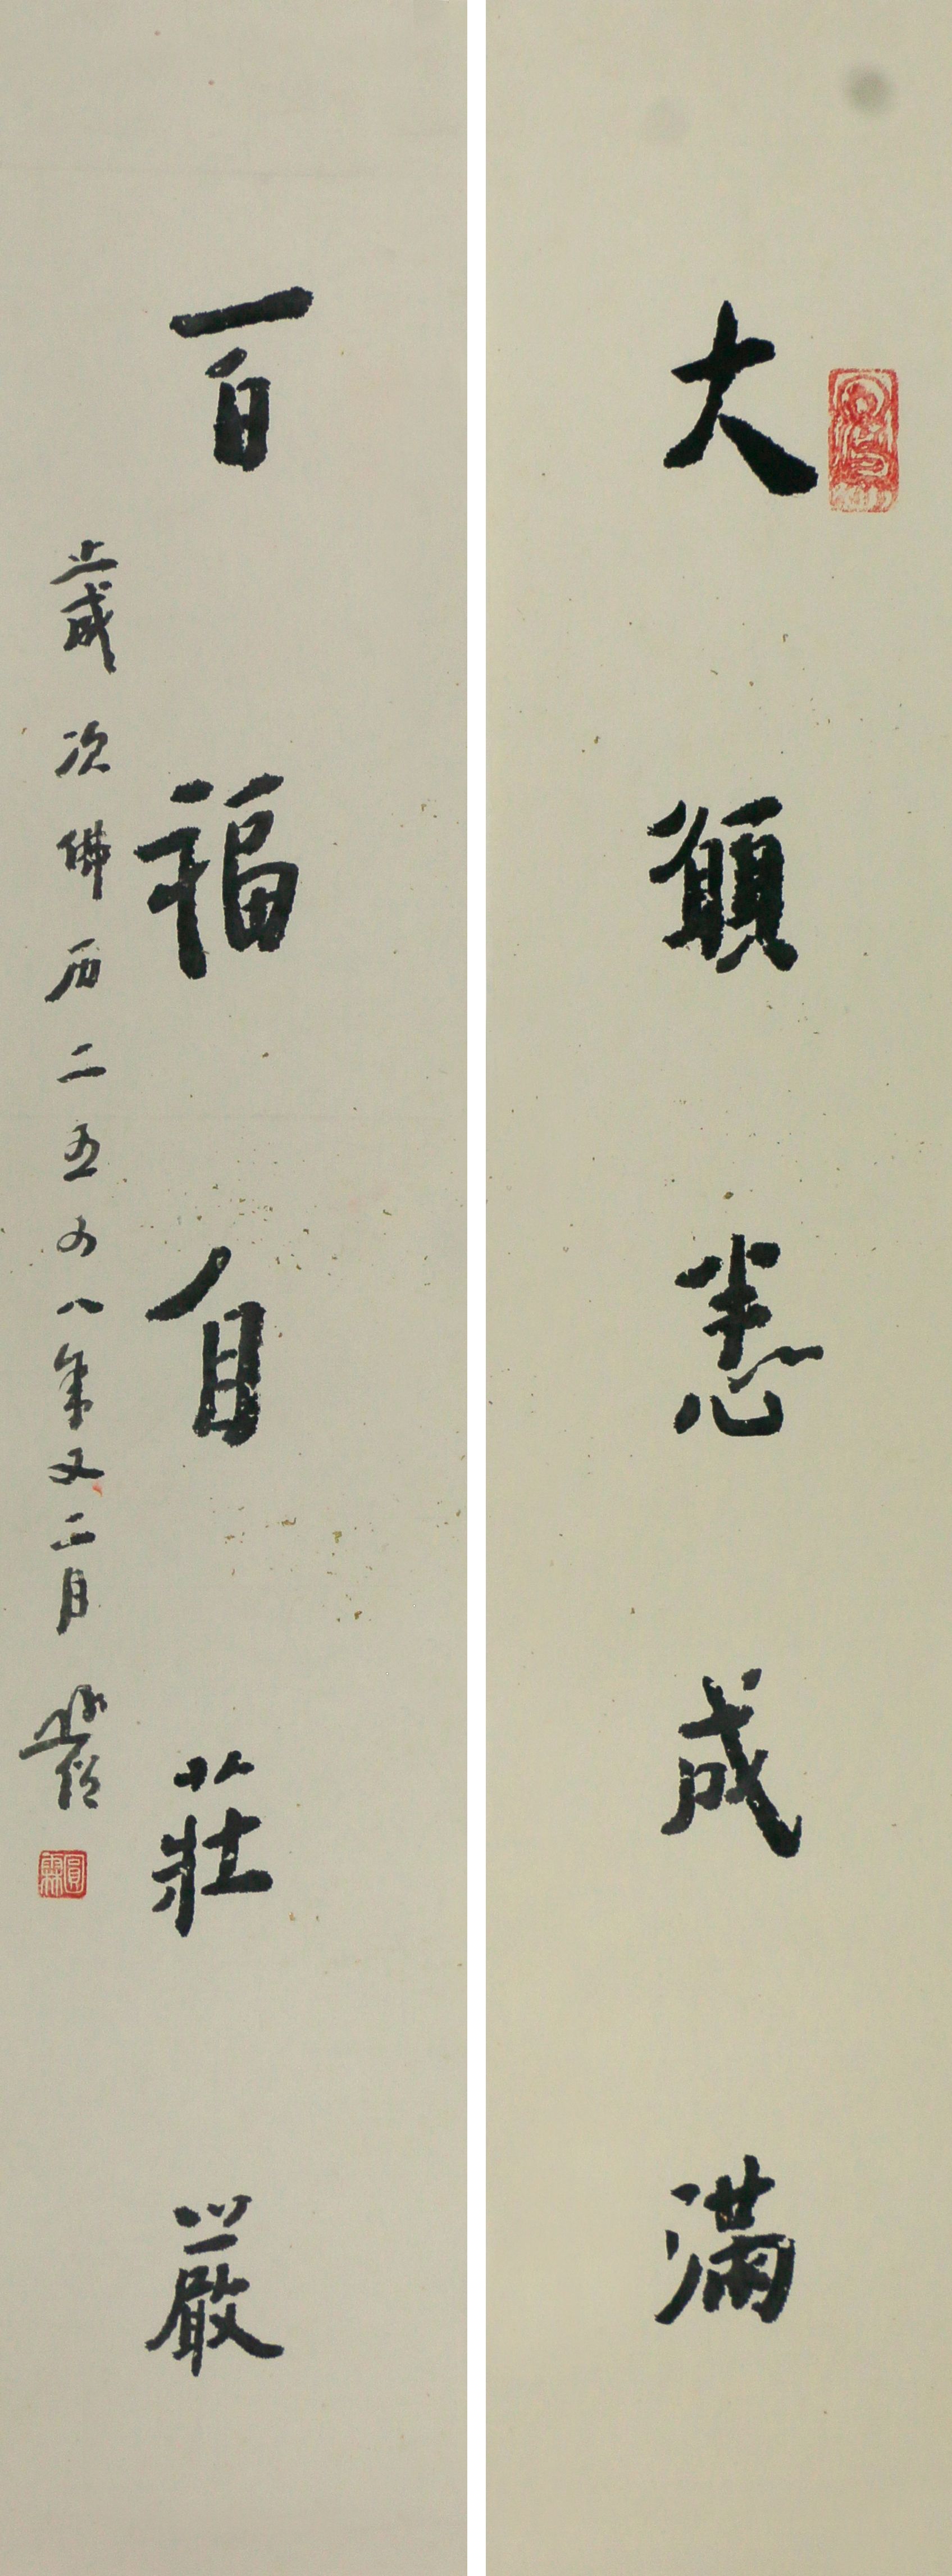 大願悉成滿
百福自莊嚴
歲次佛历二五四八年又二月
圓霖